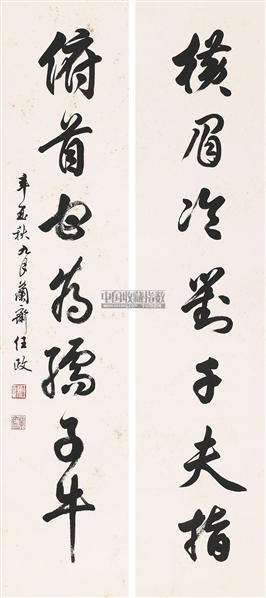 橫眉冷對千夫指
俯首甘為孺子牛
辛酉秋九月蘭齋任政
中国收藏指数